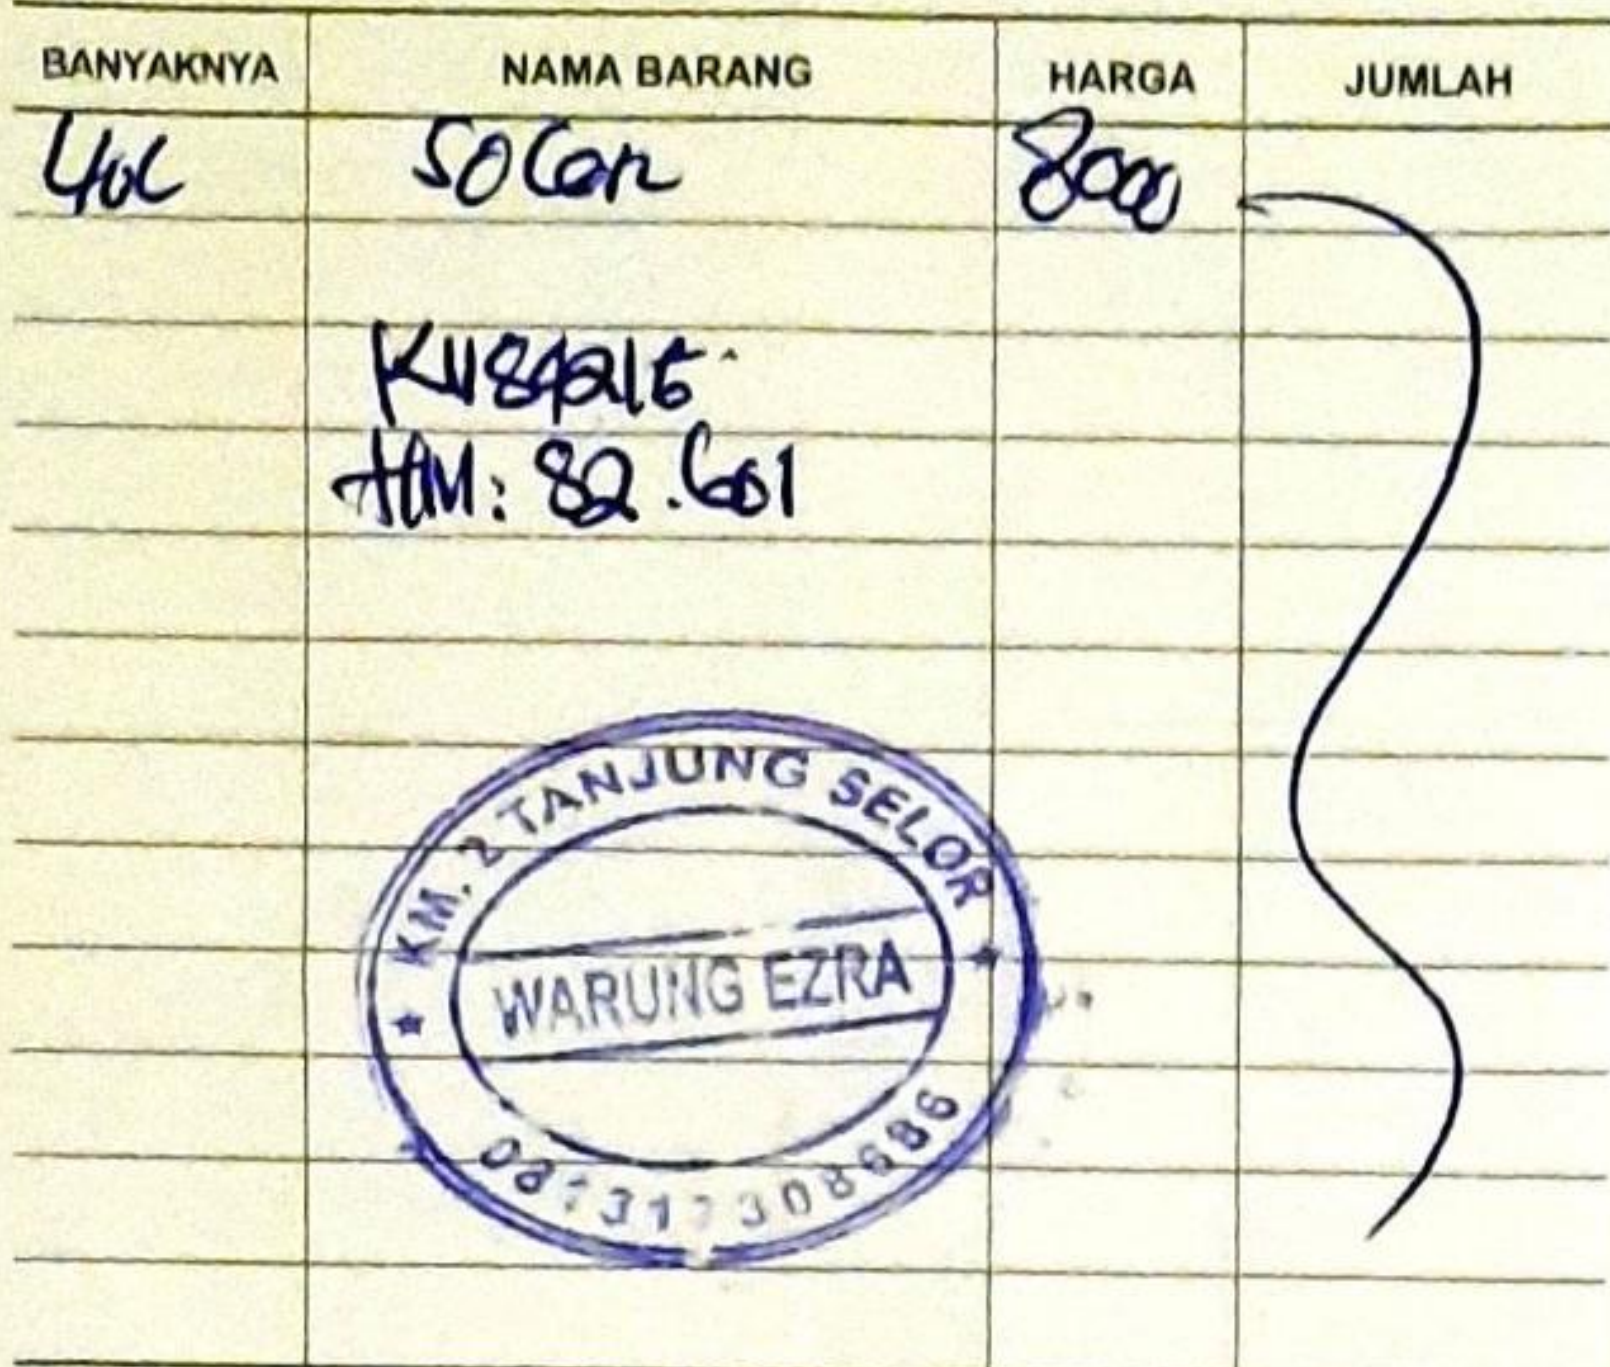 BANYAKNYA NAMA BARANG HARGA JUMLAH
40L Solar 8000
KU8421E
HM: 82.601
KM. 2 TANJUNG SELOR
WARUNG EZRA